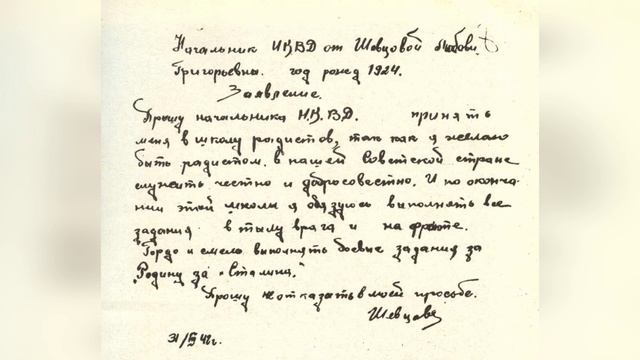 Начальник НКВД от Шевцовой Любови
Григорьевны. год рожед 1924.
Заявление.
Прошу начальника Н.К.В.Д. принять
меня в школу радистов, так как я желаю
быть радистом. в нашей Советской стране
служить честно и добросовестно. И по оконча-
нии этой школы я обязуюсь выполнять все
задания в тылу врага и на фронте.
Гордо и смело выполнять боевые задания за
"Родину за "Сталина."
Прошу не отказать в моей просьбе.
Шевцова